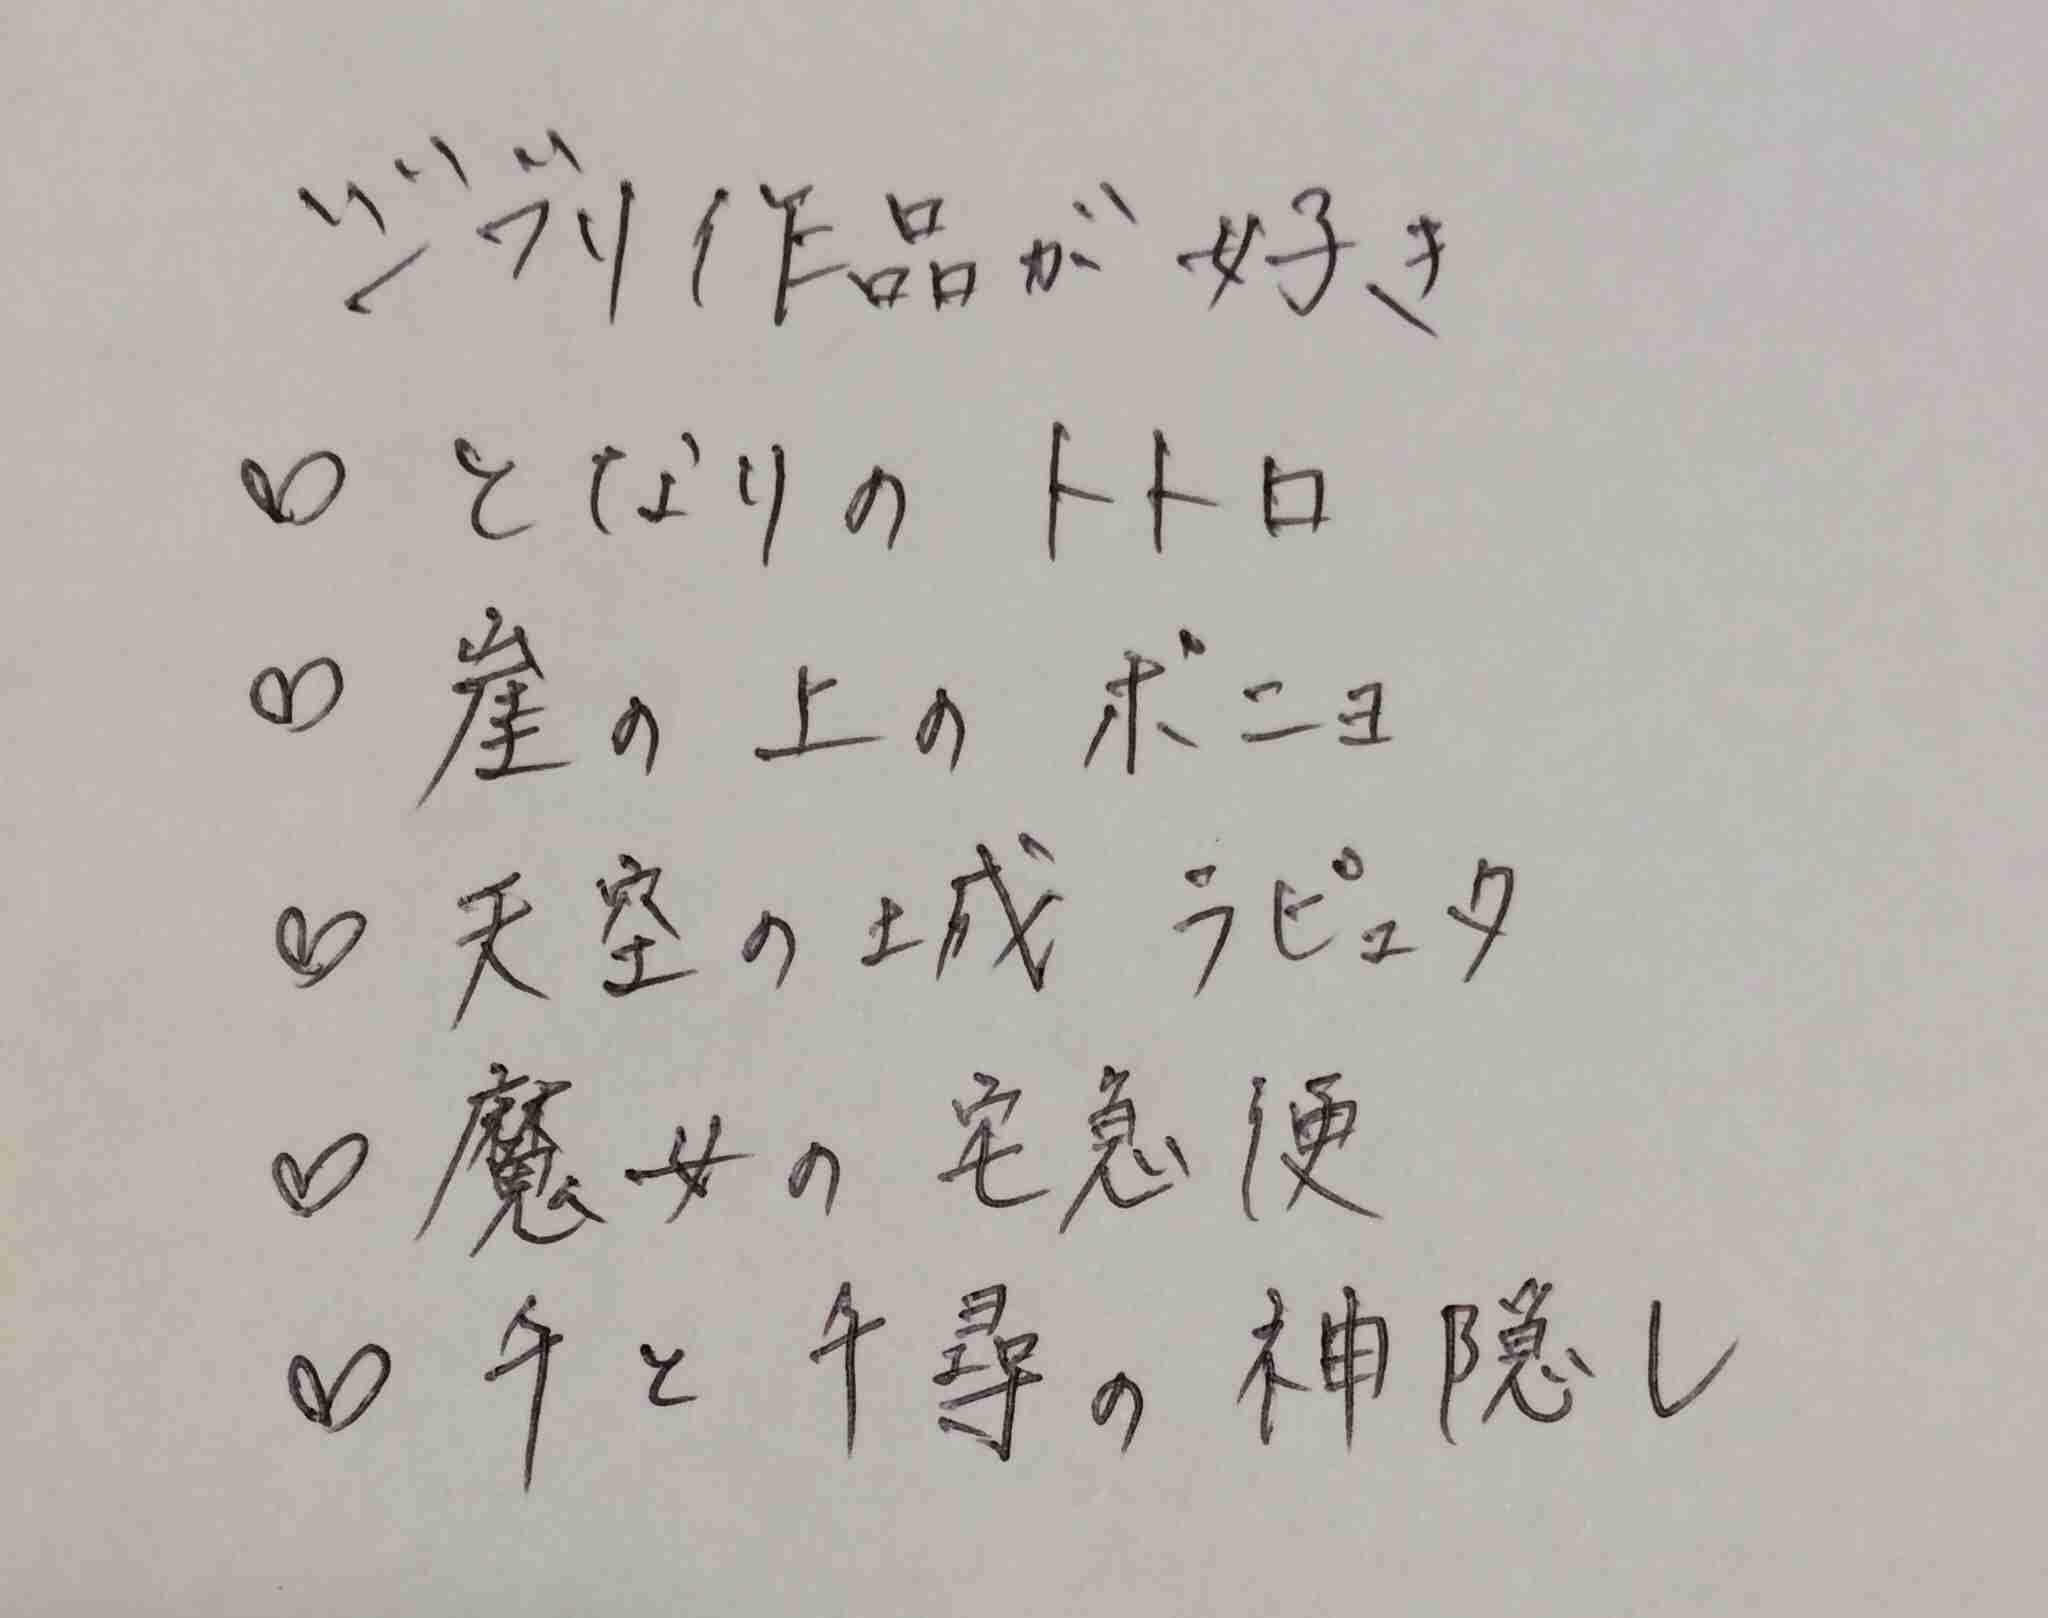 ジブリ作品が好き
♡ となりの トトロ
♡ 崖の上の ポニョ
♡ 天空の城 ラピュタ
♡ 魔女の 宅急便
♡ 千と千尋の 神隠し